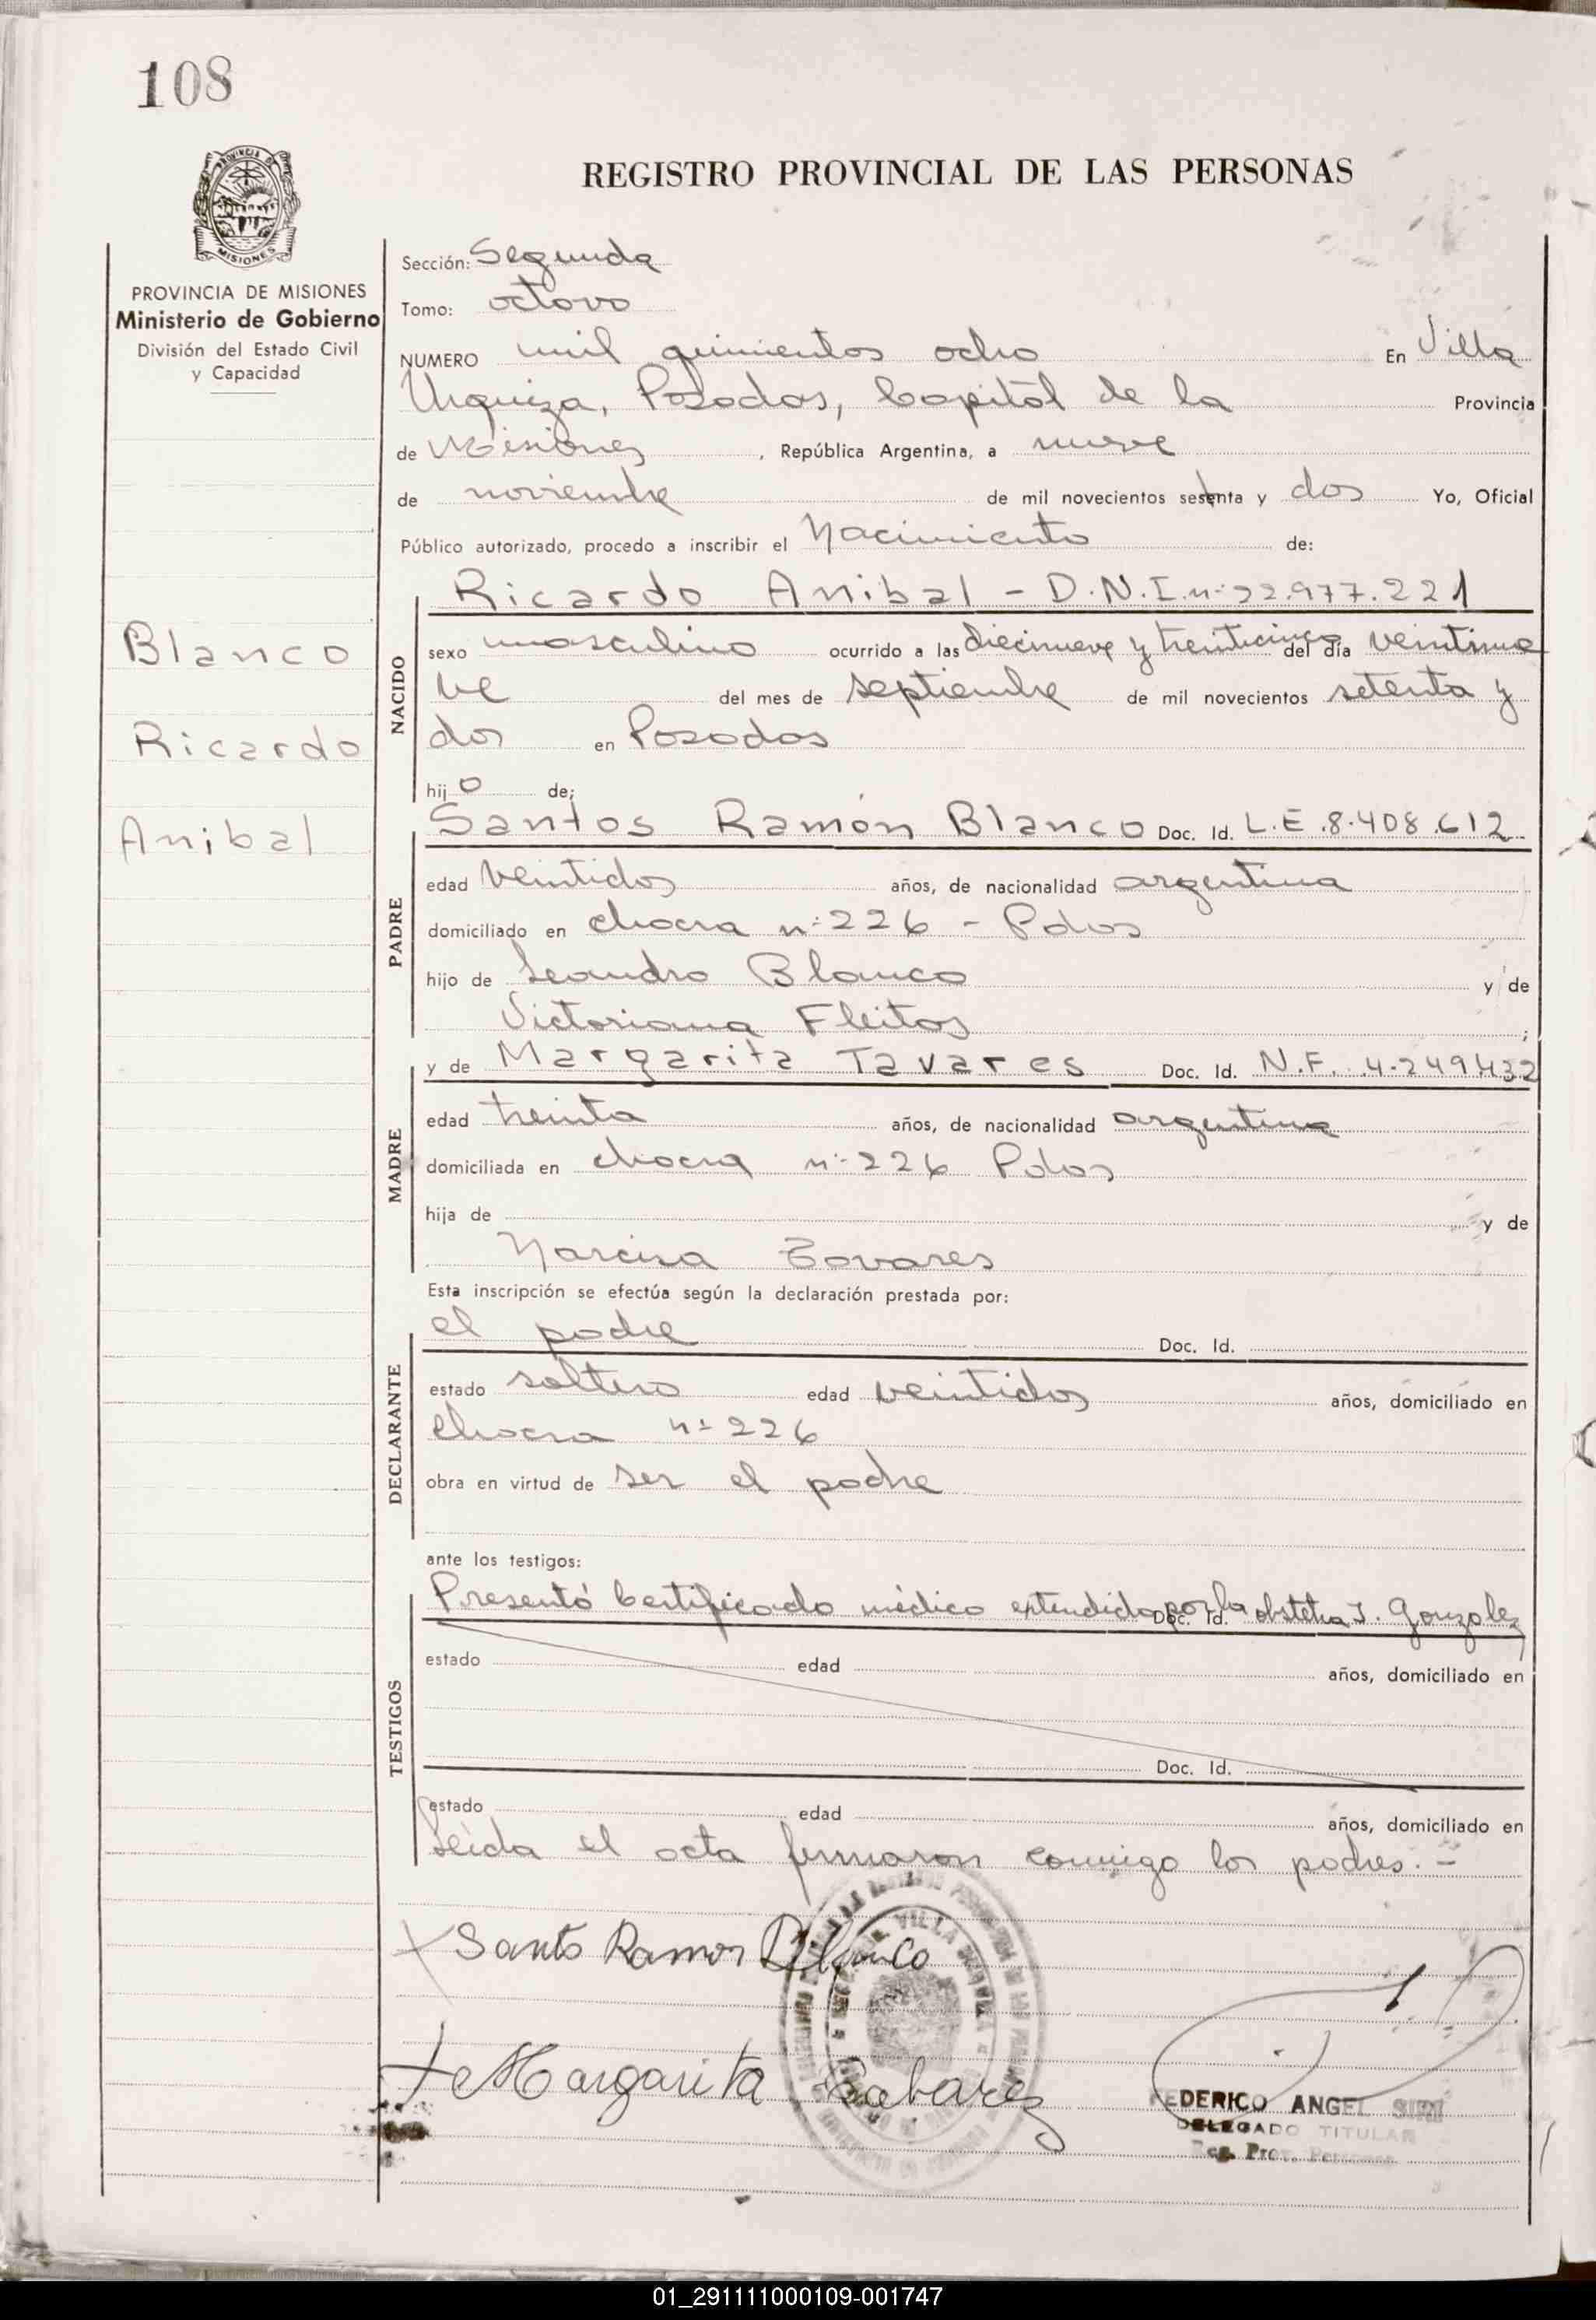 108
PROVINCIA DE
MISIONES
REGISTRO PROVINCIAL DE LAS PERSONAS
PROVINCIA DE MISIONES
Ministerio de Gobierno
División del Estado Civil
y Capacidad
Sección: Segunda
Tomo: octavo
NUMERO mil quinientos ocho En Villa
Urquiza, Posadas, Capital de la Provincia
de Misiones, República Argentina, a nueve
de noviembre de mil novecientos setenta y dos Yo, Oficial
Público autorizado, procedo a inscribir el Nacimiento de:
Ricardo Anibal - D.N.I. nº 22.977.221
Blanco
Ricardo
Anibal
NACIDO
sexo masculino ocurrido a las diecinueve y treinticinco del día veintinue
ve del mes de septiembre de mil novecientos setenta y
dos en Posadas
hijo de;
Santos Ramón Blanco Doc. Id. L.E.8.408.612
PADRE
edad veintidos años, de nacionalidad argentina
domiciliado en chacra nº 226 - Pdas
hijo de Leandro Blanco y de
Victoriana Fleitas ;
y de Margarita Tavares Doc. Id. N.F. 4.249432
MADRE
edad treinta años, de nacionalidad argentina
domiciliada en chacra nº 226 Pdas
hija de y de
Narcisa Tavares
Esta inscripción se efectúa según la declaración prestada por:
el padre Doc. Id.
DECLARANTE
estado soltero edad veintidos años, domiciliado en
chacra nº 226
obra en virtud de ser el padre
ante los testigos:
Presentó Certificado médico extendido por la obstetra J. Gonzalez
Doc. Id.
TESTIGOS
estado edad años, domiciliado en
Doc. Id.
estado edad años, domiciliado en
Leida el acta firmaron conmigo los padres. -
Santo Ramon Blanco
Margarita Tabarez
VILLA URQUIZA
FEDERICO ANGEL SIRI
DELEGADO TITULAR
Reg. Prov. Personas
01_291111000109-001747